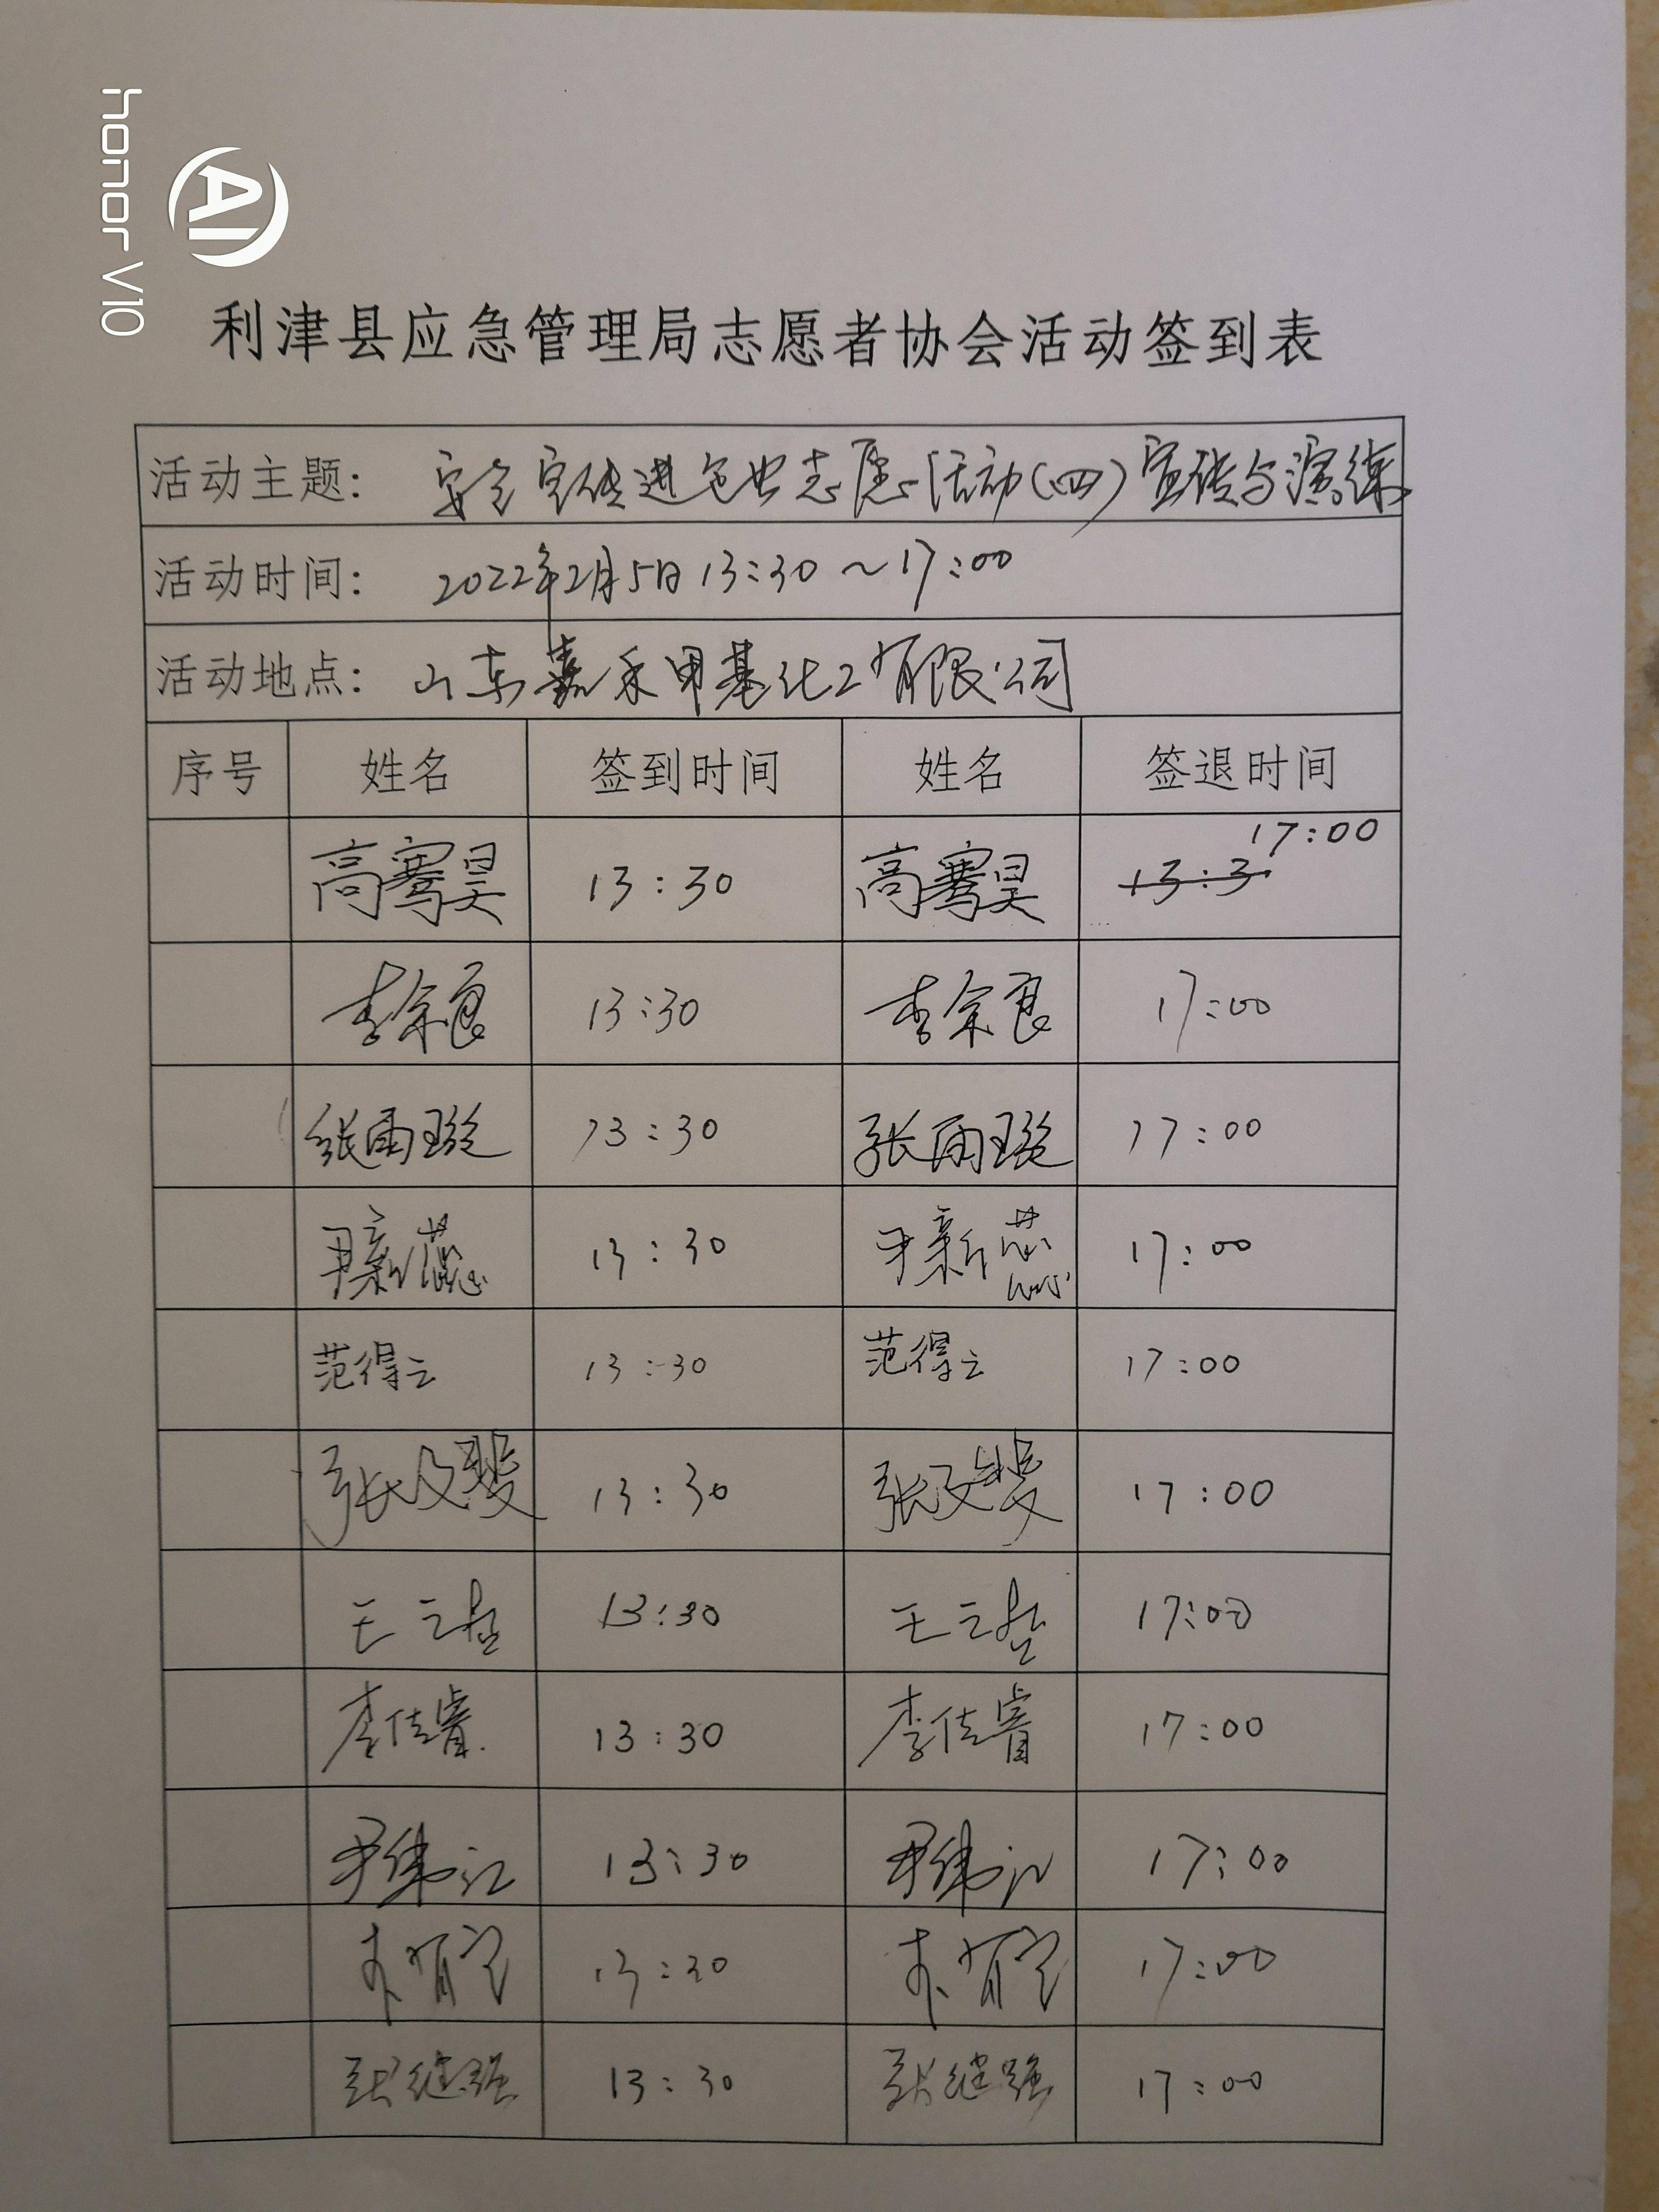 honor V10
AI
利津县应急管理局志愿者协会活动签到表
活动主题: 安全宣传进企业志愿活动(四)宣传与演练
活动时间: 2022年2月5日13:30~17:00
活动地点: 山东嘉禾甲基化工有限公司
序号 姓名 签到时间 姓名 签退时间
17:00
高骞昊 13:30 高骞昊 13:3
李余良 13:30 李余良 17:00
张雨璇 13:30 张雨璇 17:00
尹新蕊 13:30 尹新蕊 17:00
范得云 13:30 范得云 17:00
张文斐 13:30 张文斐 17:00
王 13:30 王 17:00
李佳睿 13:30 李佳睿 17:00
尹伟江 13:30 尹伟江 17:00
13:30 17:00
张继强 13:30 张继强 17:00